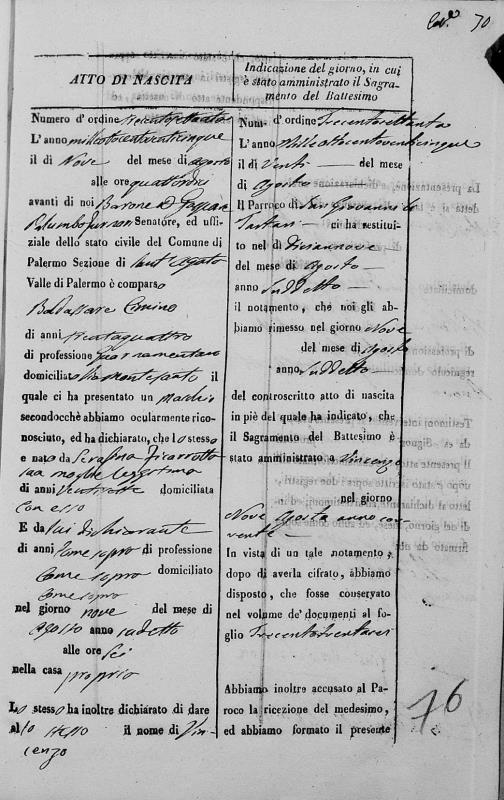 70
ATTO DI NASCITA
Numero d' ordine
L' anno millottocentoventicinque
il di Nove del mese di Agosto
alle ore quattordici
avanti di noi Barone D. Gaspare
Palumbo Senatore, ed uffi-
ziale dello stato civile del Comune di
Palermo Sezione di Sant' Agata
Valle di Palermo è comparso
Baldassare Cimino
di anni trentaquattro
di professione
domiciliato Via Montesanto il
quale ci ha presentato un Maschio
secondocchè abbiamo ocularmente rico-
nosciuto, ed ha dichiarato, che lo stesso
e nato da Serafina Ficarrotta
sua moglie legittima
di anni domiciliata
con esso
E da lui dichiarante
di anni come sopra di professione
come sopra domiciliato
come sopra
nel giorno nove del mese di
Agosto anno sudetto
alle ore sei
nella casa propria
Lo stesso ha inoltre dichiarato di dare
al lo stesso il nome di Vin-
cenzo
Indicazione del giorno, in cui
è stato amministrato il Sagra-
mento del Battesimo
Num. d' ordine Trecentosettanta
L' anno Mille ottocentoventicinque
il di Venti del mese
di Agosto
Il Parroco di San Giovanni de
Tartari ci ha restitui-
to nel di Diciannove
del mese di Agosto
anno Suddetto
il notamento, che noi gli ab-
biamo rimesso nel giorno Nove
del mese di Agosto
anno Suddetto
del controscritto atto di nascita
in piè del quale ha indicato, che
il Sagramento del Battesimo è
stato amministrato a Vincenzo
nel giorno
Nove Agosto anno cor-
rente
In vista di un tale notamento,
dopo di averla cifrato, abbiamo
disposto, che fosse conservato
nel volume de' documenti al fo-
glio Trecentotrentasei
Abbiamo inoltre accusato al Pa-
roco la ricezione del medesimo,
ed abbiamo formato il presente
76